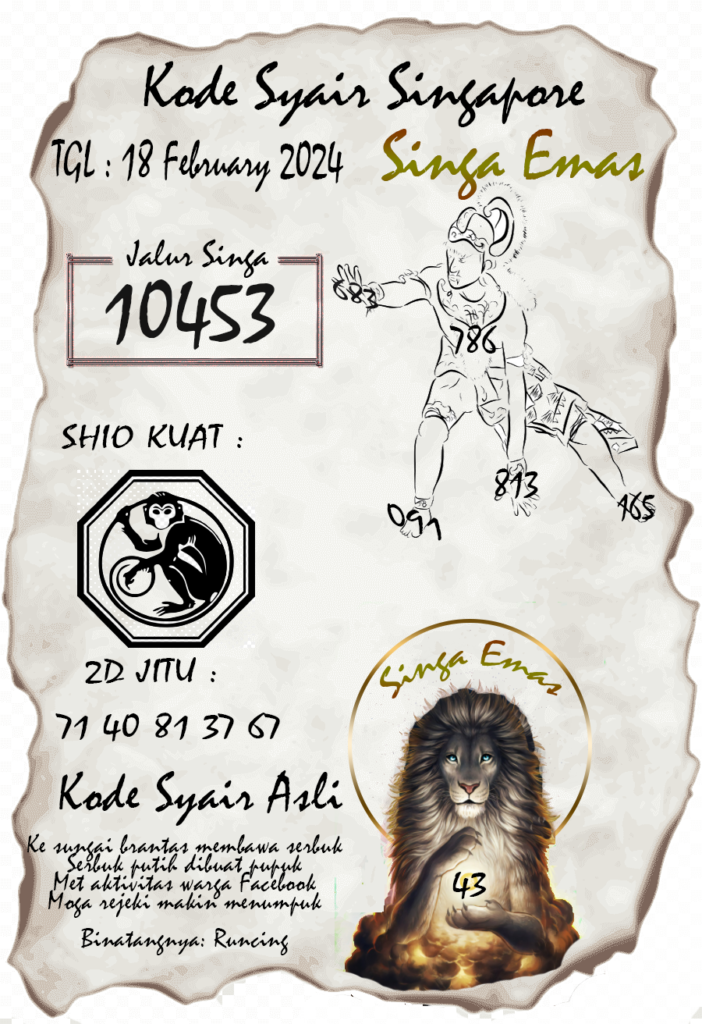 Kode Syair Singapore
TGL : 18 February 2024
Singa Emas
Jalur Singa
10453
683
786
813
091
165
SHIO KUAT :
2D JITU :
71 40 81 37 67
Singa Emas
43
Kode Syair Asli
Ke sungai brantas membawa serbuk
Serbuk putih dibuat pupuk
Met aktivitas warga Facebook
Moga rejeki makin menumpuk
Binatangnya: Runcing